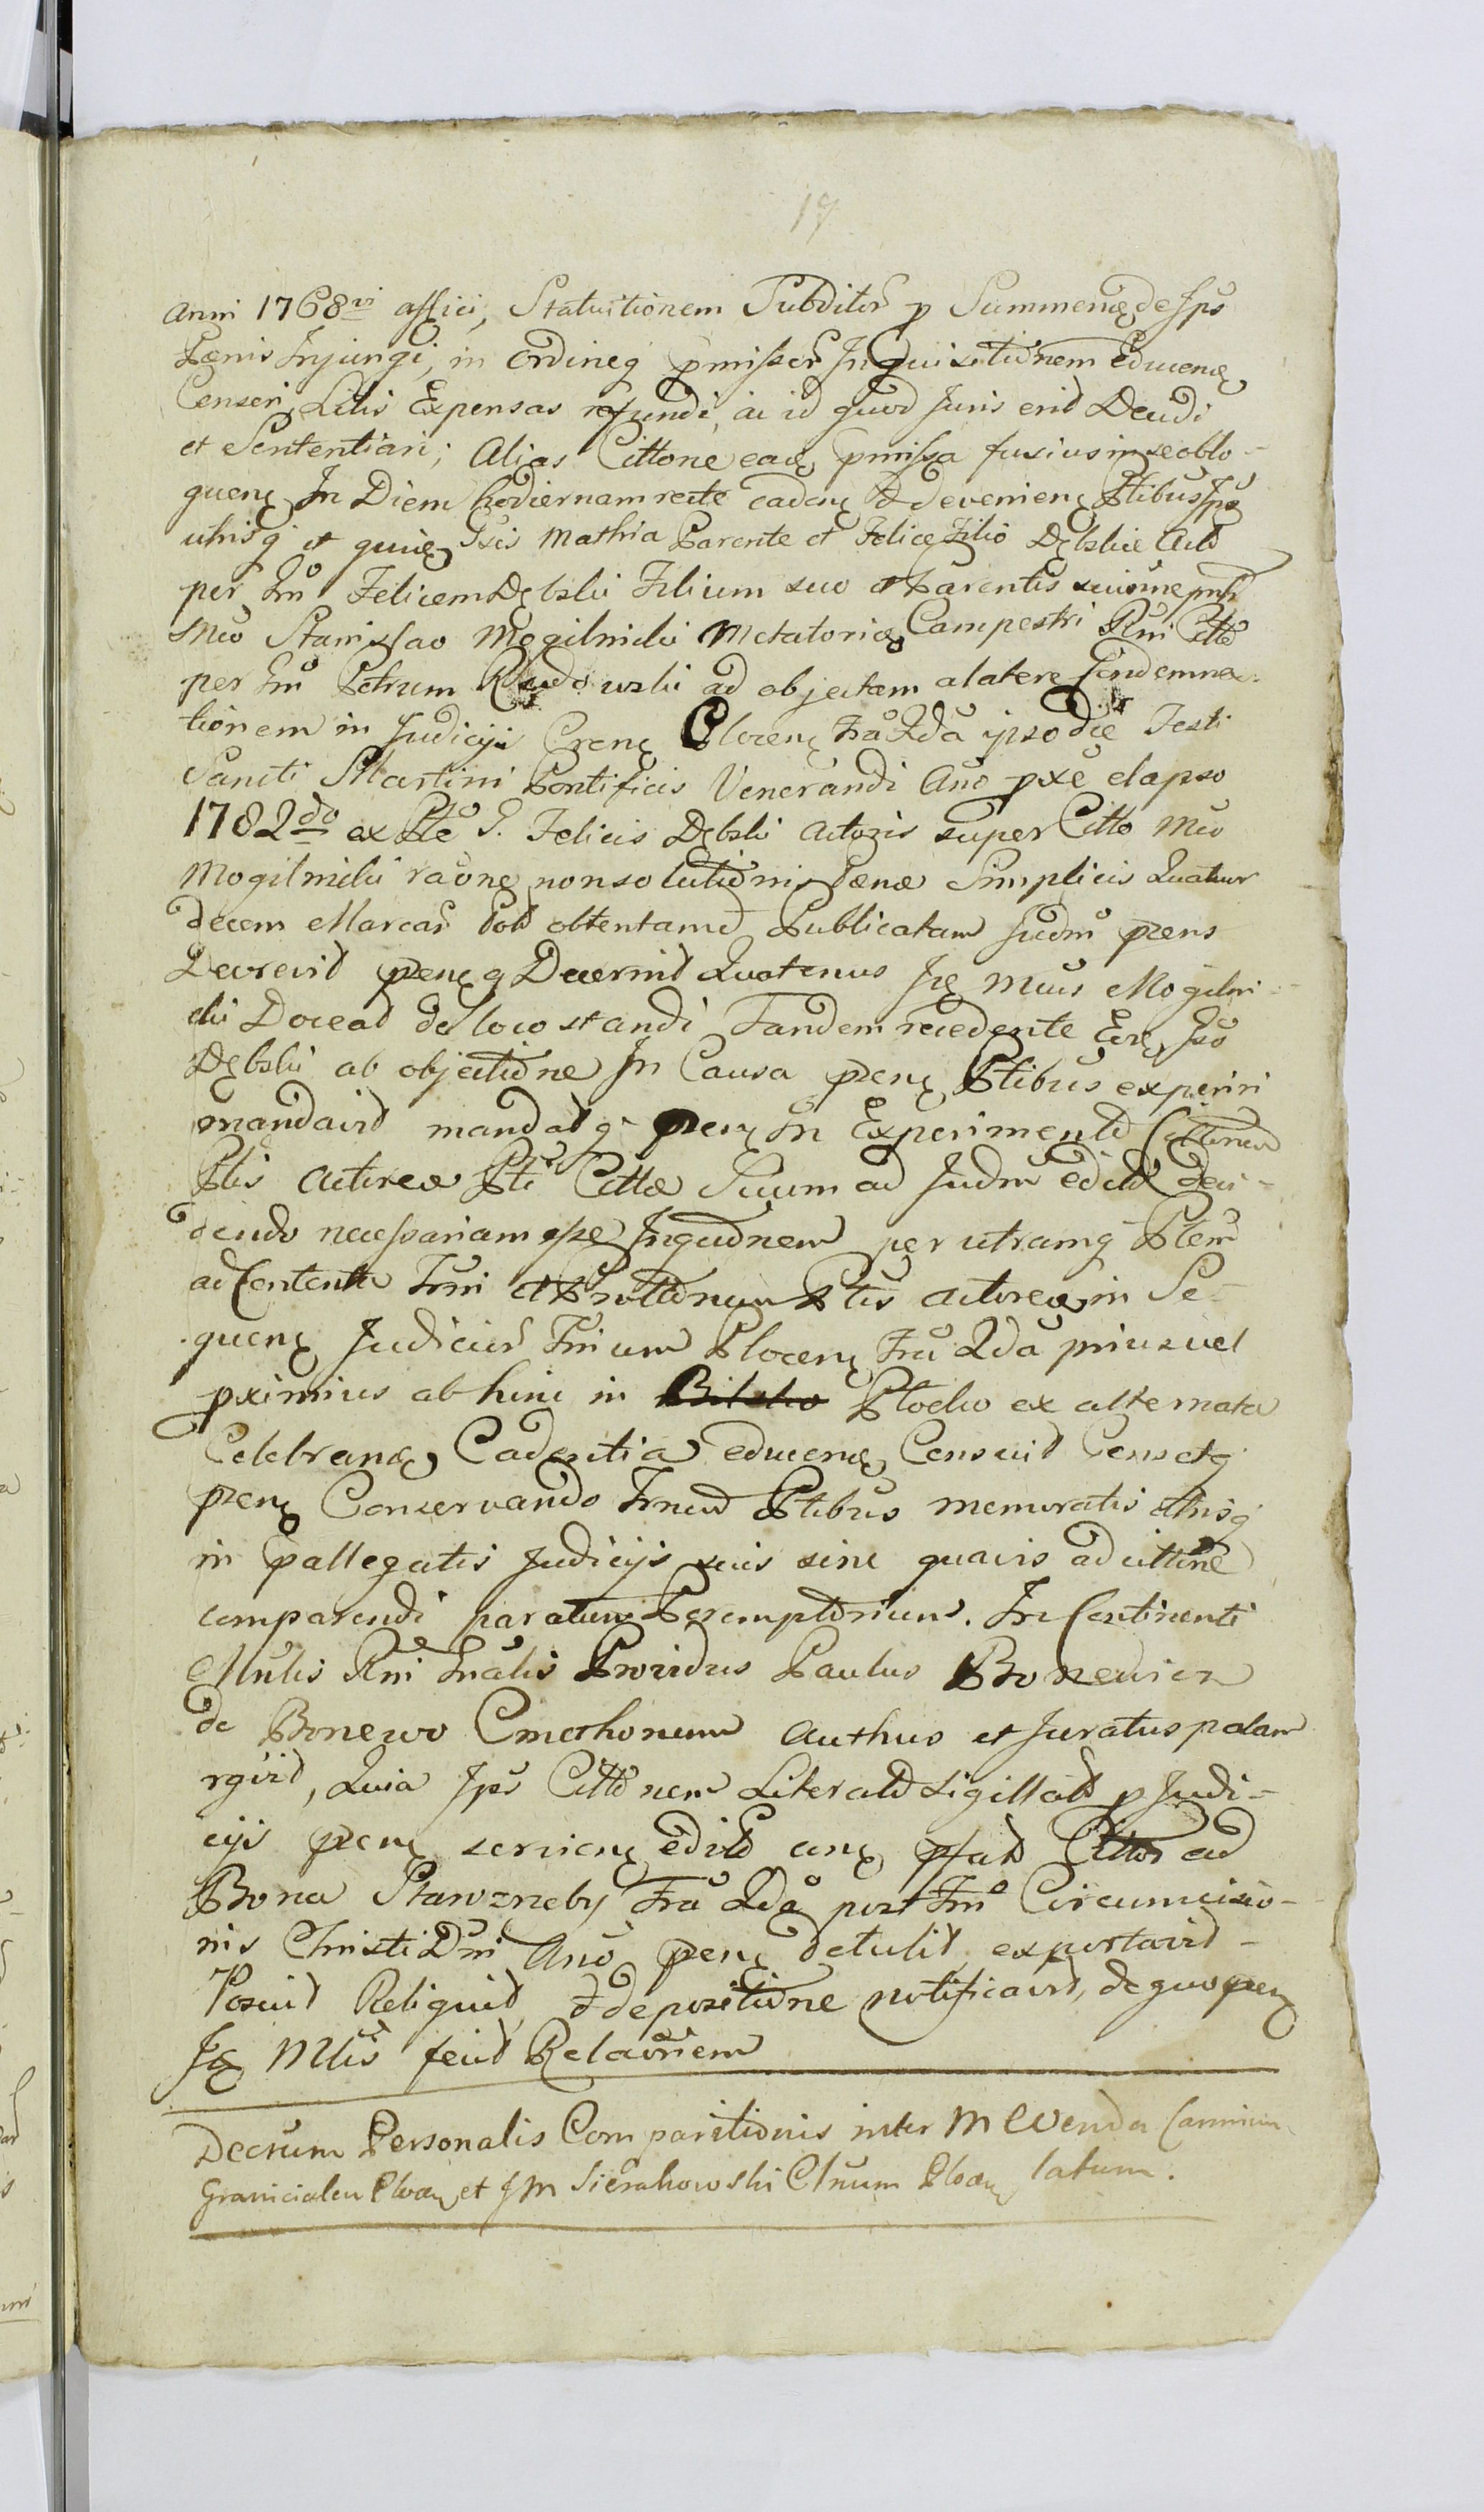 17
Anni 1768vi affici, Statuitionem Subditor p Summenę de Ips
Pænis Injungi, in Ordineq pmissor Inquisitionem Educenę
Censeri, Litis Expensas refundi, ac id quod Juris erit Decidi
et Sententiari; Alias Cittone eaę pmissa fusius in se oblo-
quenę In Diem hodiernam recte cadenę & devenienę Ptibus Ips
utrisq et quidę Gsis Mathia Parente et Felice Filio Dębskie Act
per Im Felicem Dębski Filium suo et Parentis sui nne
Mco Stanislao Mogilnicki Metatoriæ Campestri Rni Citto
per Im Petrum Rudowski ad objectam a latere Condemna-
tionem in Judicijs Crenę Plocenę Fra 2da ipso die Festi
Sancti Martini Pontificis Venerandi Ano pxe elapso
1782do ex Pte G. Felicis Dębski Actoris super Citto Mco
Mogilnicki raone non solutionis Pænæ Simplicis Quatuor
decem Marcar Pol obtentam & Publicatam Judm prens
Decrevit prenęq Decernit Quatenus Ię Mcus Mogilni-
cki Doceat de loco standi Tandem recedente Eoę Iso
Dębski ab objectione In Causa prenę Ptibus experiri
mandavit mandatq prenę In Experimento Cittonem
Ptis Actoreæ Pti Cittæ Suum ad Judm edidit deci-
dendo necessariam esse Inqudnem per utramq Ptem
ad Contenta Trni et Pnottonum Ptis Actoreæ in Se-
quenę Judicior Trium Plocenę Fra 2da prius vel
pximius ab hinc in Bilsko Plocko ex alternata
Celebranę Cadentia educenę Censuit Censetq
prenę Conservando Trnum Ptibus memoratis utrisq
in pallegatis Judicijs suis sine quavis adcittone
comparendi paratum Peremptorium. In Continenti
Mnlis Rni Gnalis Providus Paulus Bonewicz
de Bonewo Cmethonum Authus et Juratus palam
rgvit, Quia Ips Cittonem Literalt Sigillat p Judi-
cijs prenę servienę edit eanę pfat Citto ad
Bona Stawzneby Fra 2da post Fm Circumcisio-
nis Christi Dni Ano prenę detulit, exportavit-
Posuit Reliquit, & depositione notificavit, de quo prenę
Ię Mtis fecit Relaonem
Decrum Personalis Comparitionis inter M Wenda Camerar
Granicialem Plocenę et J M Sierakowski Ctnum Plocenę latum.